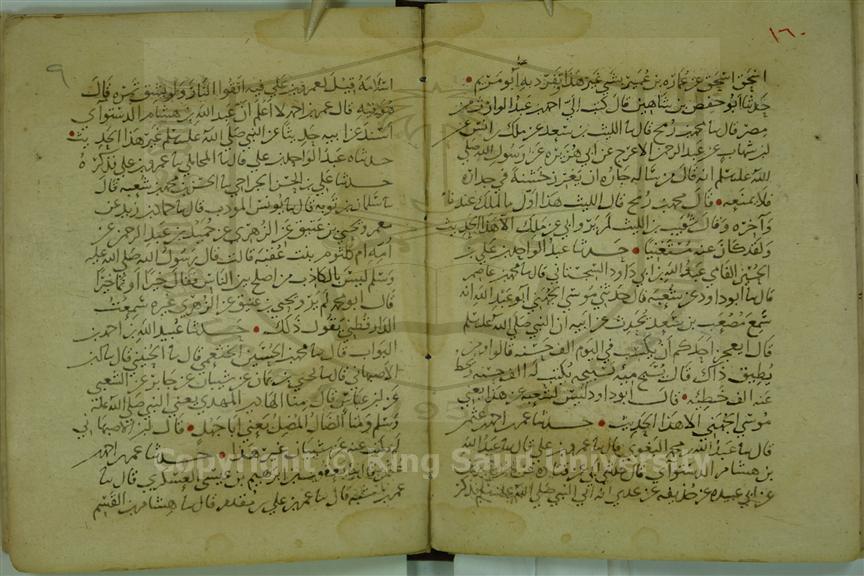 ١٦٠
اسحق اسحق عن عماره بن عمير بشي غير هذا تفرد به ابو مريم
حدثنا ابو حفص بن شاهين قال كتب الي احمد بن عبد الوارث من
مصر قال نا محمد بن رمح قال نا الليث بن سعد عن ملك بن انس عن
ابن شهاب عن عبد الرحمن الاعرج عن ابي هريره عن رسول الله صلي
الله عليه سلم انه قال من ساله جاره ان يغرز خشبة في جداره
فلا يمنعه قال محمد بن رمح قال الليث هذا اول ما لملك عندنا
وآخره وقال شعيب بن الليث لم يرو ابي عن ملك الا هذا الحديث
ولقد كان عنه مستغنيا حدثنا عبد الواحد بن علي بن
الحسين القامي عبد الله بن ابي داود السجستاني قال نا محمد بن عاصم
قال نا ابو داود عن شعبة قال حدثني موسي الجهني ابو عبد الله انه
سمع مصعب بن سعد يحدث عن ابيه ان النبي صلي الله عليه سلم
قال ايعجز احدكم ان يكتسب في اليوم الف حسنه قالوا ومن
يطيق ذاك قال يسبح ميه تسبيحه يكتب له الف حسنه ويحط
عنه الف خطيئه قال ابو داود ليس لشعبة عن هذا يعني
موسي الجهني الا هذا الحديث حدثنا عمر بن احمد بن عثمن
قال نا عبد الله بن محمد البغوي قال نا عمرو بن علي قال نا عبد الله
بن هشام الدستوائي قال حدثني ابي عن قتاده
عن ابي عبيده عن حذيفه عن عدي انه اتي النبي صلي الله عليه سلم فذكر
٩
اسلامه قيل لعمرو بن علي فيه اتقوا النار ولو بشق تمره قال
هو فيه قال عمر بن احمد لا اعلم ان عبد الله بن هشام الدستوائي
اسند عن ابيه حديثا عن النبي صلي الله عليه سلم غير هذا الحديث
حدثناه عبد الواحد بن علي قال نا المحاملي نا عمرو بن علي فذكره
حدثنا علي بن الحسن الجراحي نا الحسن بن محمد بن شعبه قال
نا سلمان بن توبه قال نا يونس المودب قال نا حماد بن زيد عن
معمر ويحيي بن عتيق عن الزهري عن حميد بن عبد الرحمن عن
امه ام كلثوم بنت عقبه قالت قال رسول الله صلي الله عليه
وسلم ليس بالكاذب من اصلح بين الناس فقال خيرا او نما خيرا
قال ابو محمد لم يرو يحيي بن عتيق عن الزهري غيره سمعت
الدارقطني يقول ذلك حدثنا عبيد الله بن احمد بن
البواب قال نا محمد بن الحسين الخثعمي قال نا الحسني قال نا ابن
الاصبهاني قال نا يحيي بن يمان عن شيبان عن جابر عن الشعبي
عن ابن عباس قال منا الهادي المهدي يعني النبي صلي الله عليه
وسلم ومنا الضال المضل يعني ابا جهل قال ابن الاصبهاني
لم اكتب عنه عن شيبان غير هذا حدثنا عمر بن احمد
ابراهيم بن عيسي العسكري قال نا
عمر بن شبه قال نا عمر بن علي بن مقدم قال نا هشام بن القسم
Copyright © King Saud University